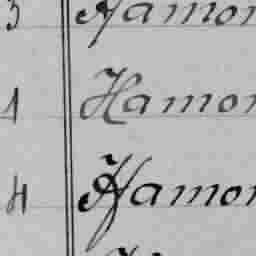 3 Hamon
1 Hamon
4 Hamon